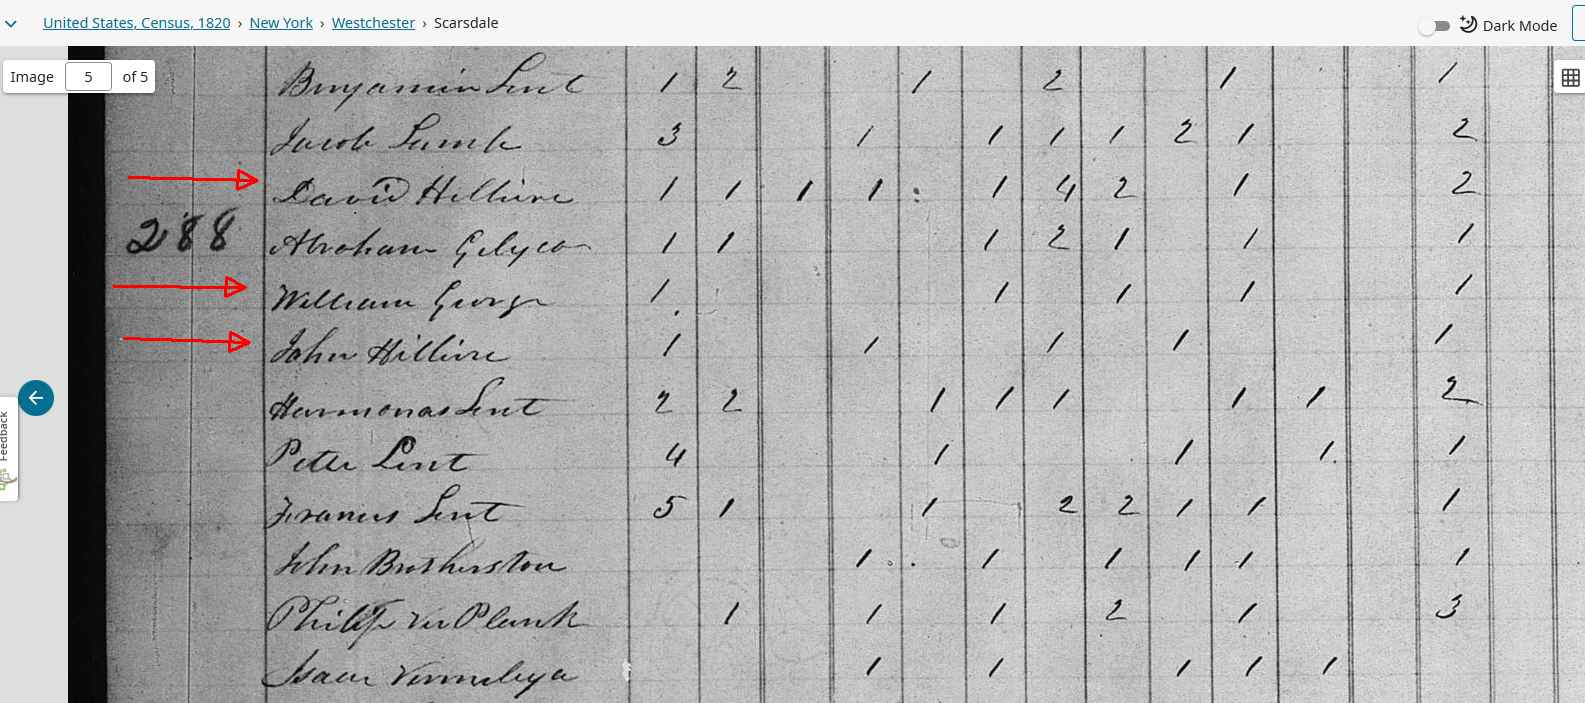 United States, Census, 1820 › New York › Westchester › Scarsdale
Dark Mode
Image 5 of 5
Benjamin Lent 1 2 1 2 1 1
Jacob Lamb 3 1 1 1 1 2 1 2
David Hilliire 1 1 1 1 1 4 2 1 2
288
Abraham 1 1 1 2 1 1 1
William George 1 1 1 1 1
John Hilliire 1 1 1 1 1
Harmonas Lent 2 2 1 1 1 1 1 2
Peter Lent 4 1 1 1 1
Feedback
Francis Lent 5 1 1 2 2 1 1 1
John Brotherston 1 1 1 1 1 1
Philip Ver Plank 1 1 1 2 1 3
Isaac 1 1 1 1 1